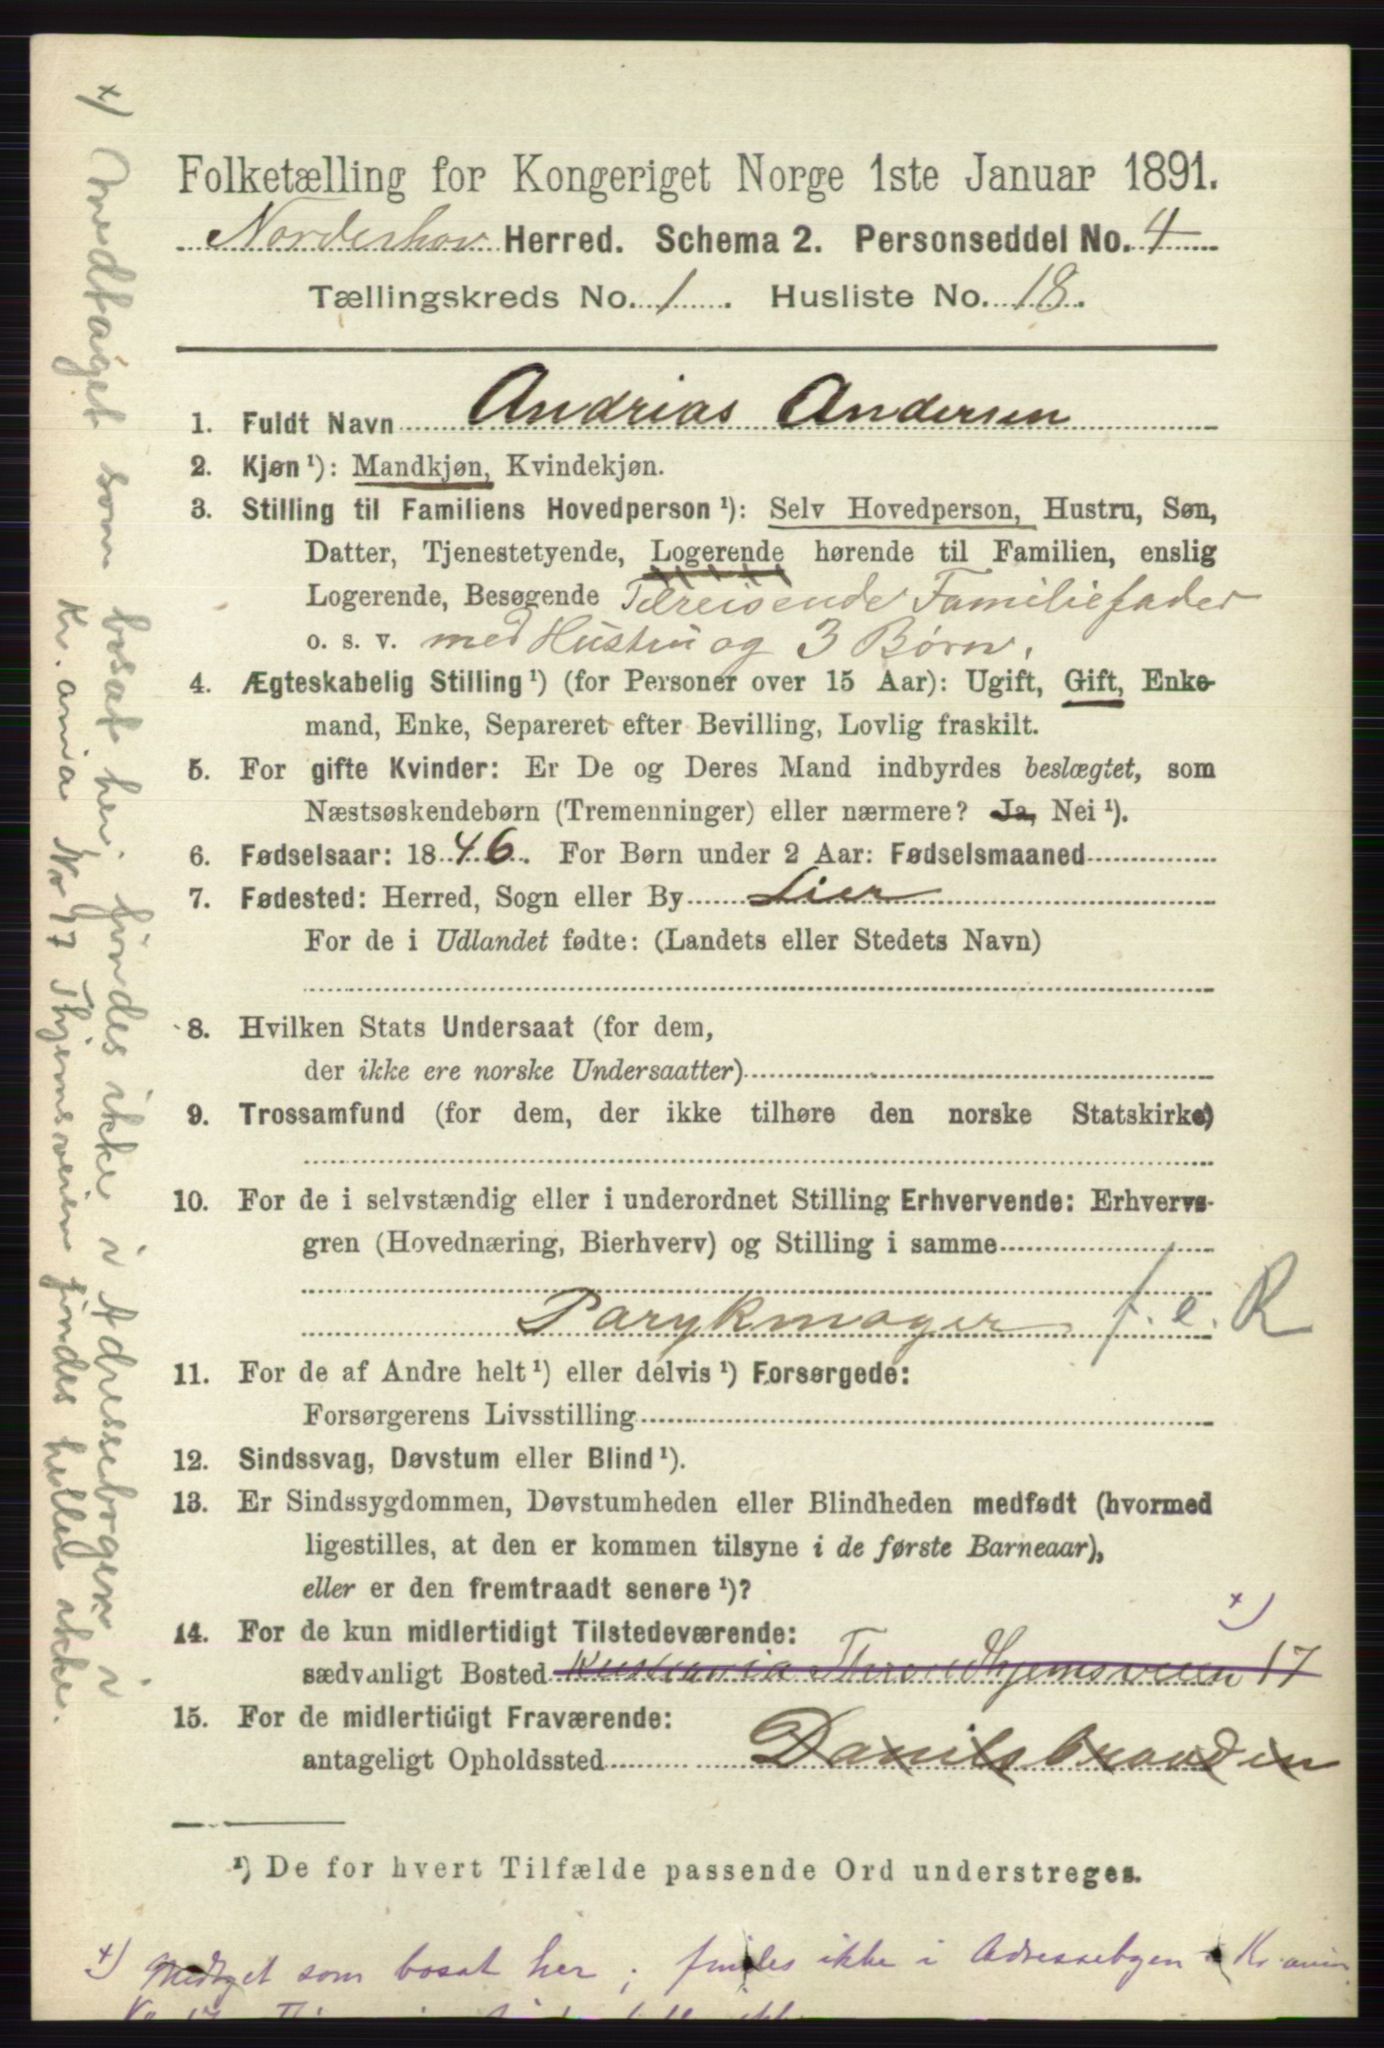 Folketælling for Kongeriget Norge 1ste Januar 1891.
Norderhov Herred. Schema 2. Personseddel No. 4
Tællingskreds No. 1. Husliste No. 18.
1. Fuldt Navn Andrias Andersen
2. Kjøn¹): Mandkjøn, Kvindekjøn.
3. Stilling til Familiens Hovedperson¹): Selv Hovedperson, Hustru, Søn,
Datter, Tjenestetyende, Logerende hørende til Familien, enslig
Logerende, Besøgende Tilreisende Familiefader
o. s. v. med Hustru og 3 Børn.
4. Ægteskabelig Stilling¹) (for Personer over 15 Aar): Ugift, Gift, Enke-
mand, Enke, Separeret efter Bevilling, Lovlig fraskilt.
5. For gifte Kvinder: Er De og Deres Mand indbyrdes beslægtet, som
Næstsøskendebørn (Tremenninger) eller nærmere? Ja, Nei¹).
6. Fødselsaar: 1846. For Børn under 2 Aar: Fødselsmaaned
7. Fødested: Herred, Sogn eller By Lier
For de i Udlandet fødte: (Landets eller Stedets Navn)
8. Hvilken Stats Undersaat (for dem,
der ikke ere norske Undersaatter)
9. Trossamfund (for dem, der ikke tilhøre den norske Statskirke)
10. For de i selvstændig eller i underordnet Stilling Erhvervende: Erhvervs-
gren (Hovednæring, Bierhverv) og Stilling i samme
Parykmager f. e. R
11. For de af Andre helt¹) eller delvis¹) Forsørgede:
Forsørgerens Livsstilling
12. Sindssvag, Døvstum eller Blind¹).
13. Er Sindssygdommen, Døvstumheden eller Blindheden medfødt (hvormed
ligestilles, at den er kommen tilsyne i de første Barneaar),
eller er den fremtraadt senere¹)?
14. For de kun midlertidigt Tilstedeværende: x)
sædvanligt Bosted Kristiania Throndhjemsveien 17
15. For de midlertidigt Fraværende:
antageligt Opholdssted Danilsbraaden
¹) De for hvert Tilfælde passende Ord understreges.
x) Medtaget som bosat her; findes ikke i Adressebogen i Kr.ania
x) Medtaget som bosat her; findes ikke i Adressebogen i
Kr.ania No 17 Thjemsveien findes heller ikke.